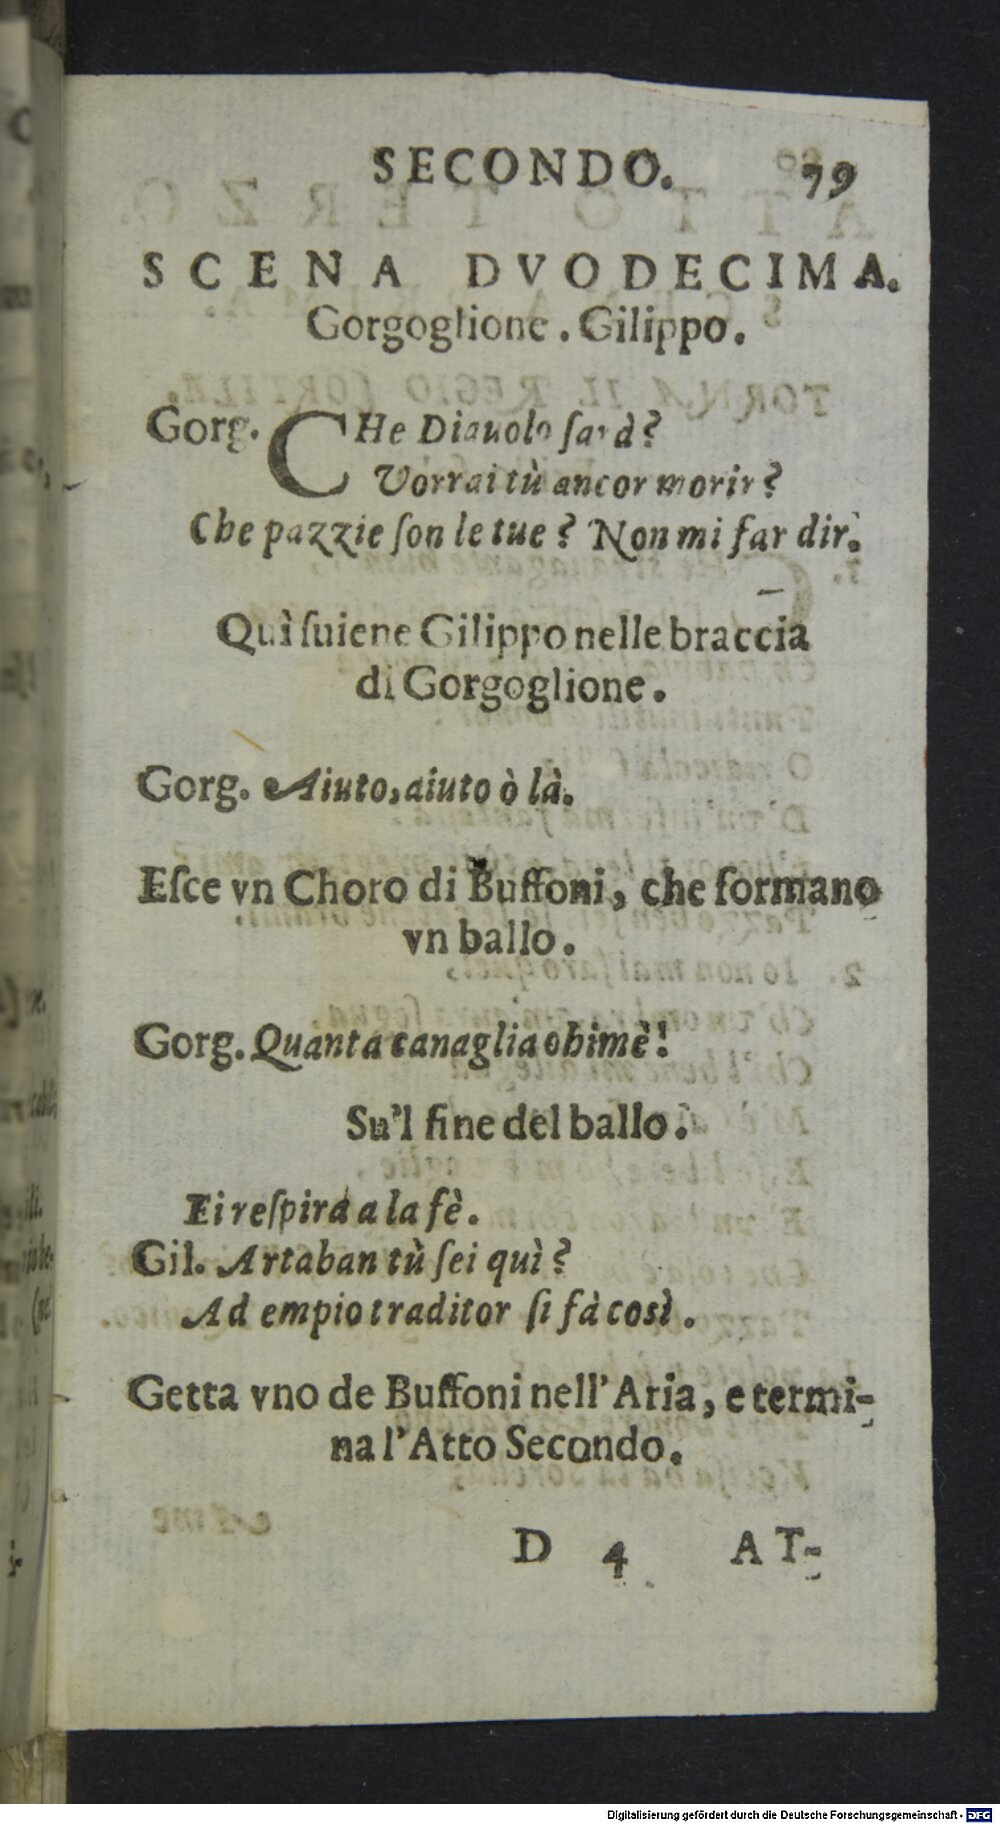 SECONDO. 79
SCENA DVODECIMA.
Gorgoglione. Gilippo.
Gorg. CHe Diauolo ſarà?
Vorrai tù ancor morir?
Che pazzie ſon le tue? Non mi far dir.
Quì ſuiene Gilippo nelle braccia
di Gorgoglione.
Gorg. Aiuto, aiuto ò là.
Eſce vn Choro di Buffoni, che formano
vn ballo.
Gorg. Quanta canaglia ohimè!
Su'l fine del ballo.
Ei reſpira a la fè.
Gil. Artaban tù ſei quì?
Ad empio traditor ſi fà così.
Getta vno de Buffoni nell'Aria, e termi-
na l'Atto Secondo.
D 4 AT-
Digitalisierung gefördert durch die Deutsche Forschungsgemeinschaft - DFG